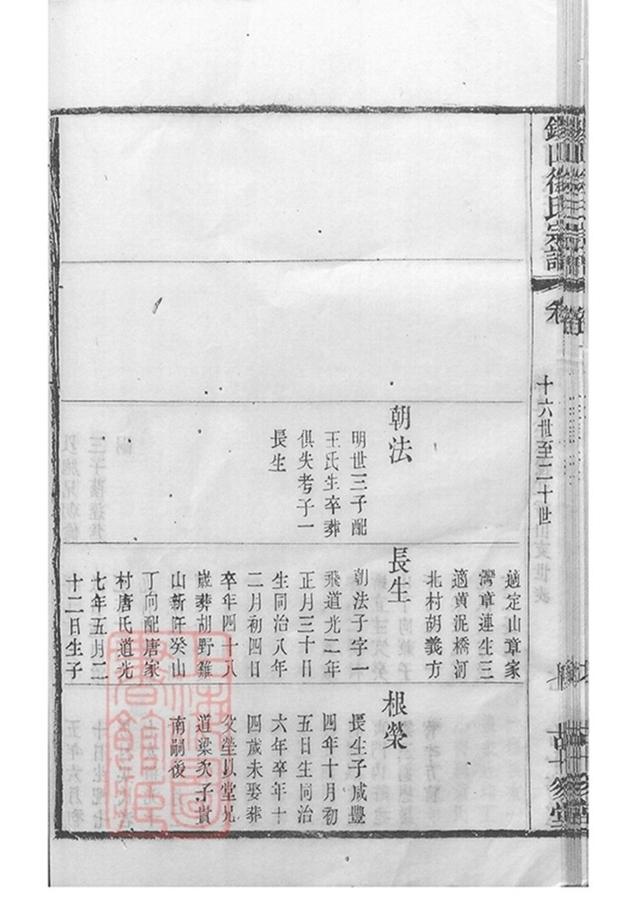 山徐氏宗譜
卷
十六世至二十世
適定山章家
灣章蓮生三
適黄泥橋河
北村胡義方
朝法
明世三子配
王氏生卒葬
俱失考子一
長生
長生
朝法子字一
飛道光二年
正月三十日
生同治八年
二月初四日
卒年四十八
歲葬胡野雞
山新阡癸山
丁向配唐家
村唐氏道光
七年五月二
十二日生子
根榮
長生子咸豐
四年十月初
五日生同治
六年卒年十
四歲未娶葬
父塋以堂兄
道梁次子貴
南嗣後